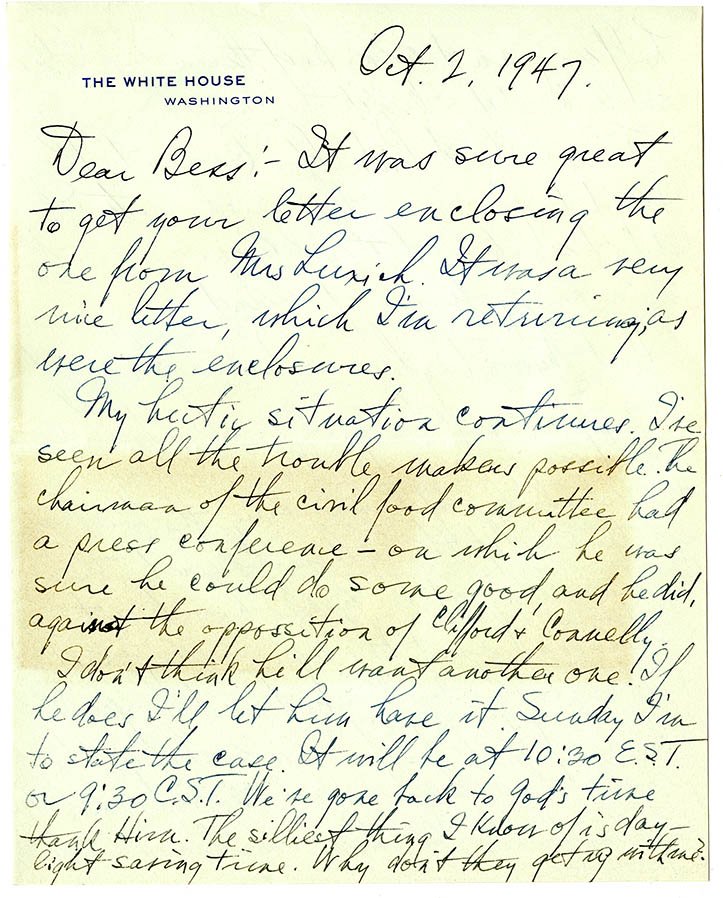 THE WHITE HOUSE
WASHINGTON
Oct. 2, 1947.
Dear Bess:- It was sure great
to get your letter enclosing the
one from Mrs . It was a very
nice letter, which I'm returning, as
were the enclosures.
My hectic situation continues. I've
seen all the trouble makers possible. The
chairman of the civil food committee had
a press conference - on which he was
sure he could do some good, and he did,
against the oppossition of Clifford & Connelly.
I don't think he'll want another one. If
he does I'll let him have it. Sunday I'm
to state the case. It will be at 10:30 E.S.T.
or 9:30 C.S.T. We've gone back to God's time
thank Him. The silliest thing I know of is day-
light saving time. Why don't they get up with me?